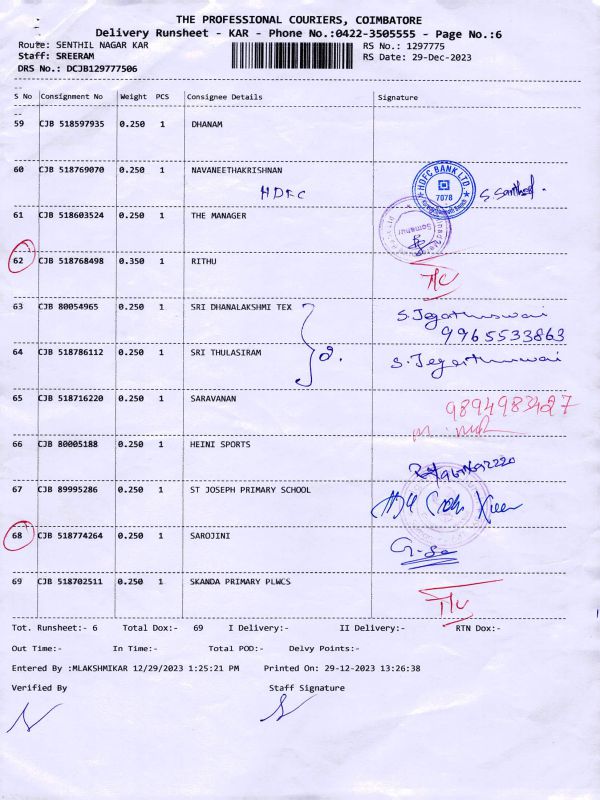 THE PROFESSIONAL COURIERS, COIMBATORE
Delivery Runsheet - KAR - Phone No.:0422-3505555 - Page No.:6
Route: SENTHIL NAGAR KAR RS No.: 1297775
Staff: SREERAM RS Date: 29-Dec-2023
DRS No.: DCJB129777506
S No Consignment No Weight PCS Consignee Details Signature
59 CJB 518597935 0.250 1 DHANAM
60 CJB 518769070 0.250 1 NAVANEETHAKRISHNAN
HDFC HDFC BANK LTD. 7078
61 CJB 518603524 0.250 1 THE MANAGER
Somanur
62 CJB 518768498 0.350 1 RITHU
63 CJB 80054965 0.250 1 SRI DHANALAKSHMI TEX S.Jegathiswai
9965533863
64 CJB 518786112 0.250 1 SRI THULASIRAM 2. S.Jegathiswai
65 CJB 518716220 0.250 1 SARAVANAN 9894983427
66 CJB 80005188 0.250 1 HEINI SPORTS
67 CJB 89995286 0.250 1 ST JOSEPH PRIMARY SCHOOL
68 CJB 518774264 0.250 1 SAROJINI
69 CJB 518702511 0.250 1 SKANDA PRIMARY PLWCS
Tot. Runsheet:- 6 Total Dox:- 69 I Delivery:- II Delivery:- RTN Dox:-
Out Time:- In Time:- Total POD:- Delvy Points:-
Entered By :MLAKSHMIKAR 12/29/2023 1:25:21 PM Printed On: 29-12-2023 13:26:38
Verified By Staff Signature